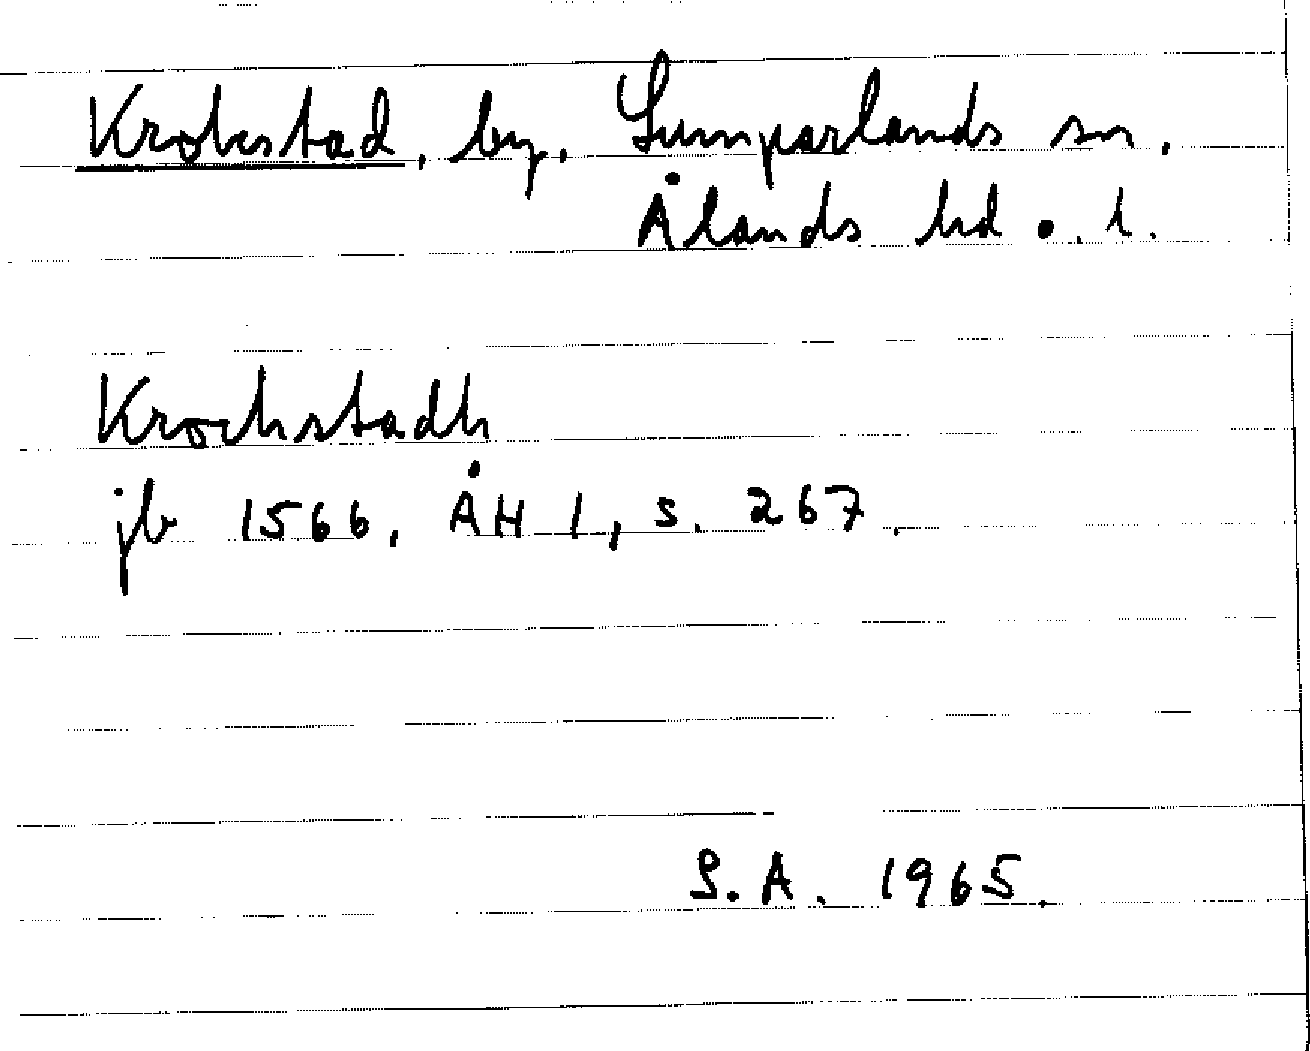 Krokstad, by. Lumparlands sn.
Ålands hd o. l.
Krochstadh
jb 1566, ÅH 1, s. 267.
S.A. 1965.